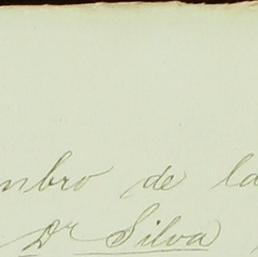 mbro de la
Dr Silva